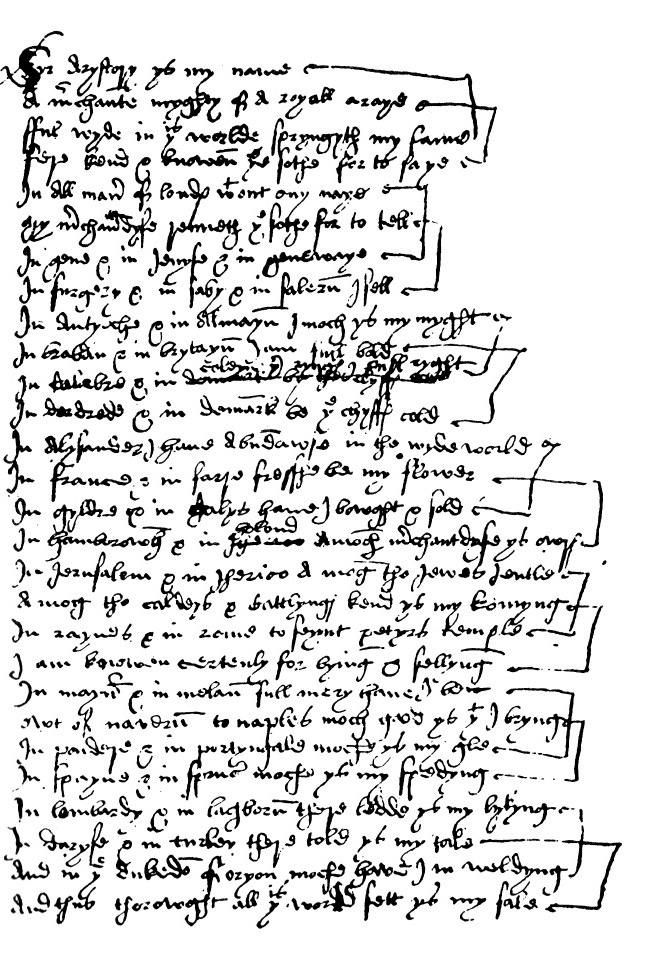 Syr Arystory ys my name
A mchante myghty of A royall araye
fful wyde in yis worlde spryngyth my fame
fere kend & knowen ye sothe for to saye
In All man of londys wt owt ony naye
My mchaundyse renneth ye sothe for to tell
In gene & in Jenyse & in genewaye
In surrey & in saby & in salern I sell
In Antyoche & in Allmayn moch ys my myght
In braban & in brytayn I am full bold
In Calabre & in coleyn yr rynge I full ryght
In dordrede & in demark be ye chyff cold
In Alysander I haue Abundawse in the wyde world
In france & in farre fresshe be my flower
In gyldre & in galys haue I bowght & sold
In hamborowh & in holond Amoch mchantdyse ys owrs
In Jerusalem & in Jherico Amog the Jewes Jentle
A mog tho caldeys & Cattlyngs kend ys my komyng
In raynes & in rome to seynt petyrs temple
I am knowen certenly for bying & sellyng
In mayn & in melan full mery haue I be
owt of navern to naples moch good ys yt I bryng
In pondere & in portyngale moche ys my gle
In spayne & in spruce moche ys my spedyng
In lombardy & in lachborun there ledde ys my lykyng
In taryse & in turkey there told ys my tale
And in ye dukedom of oryon moche haue I in weldyng
And thus thorowght all yis world sett ys my sale